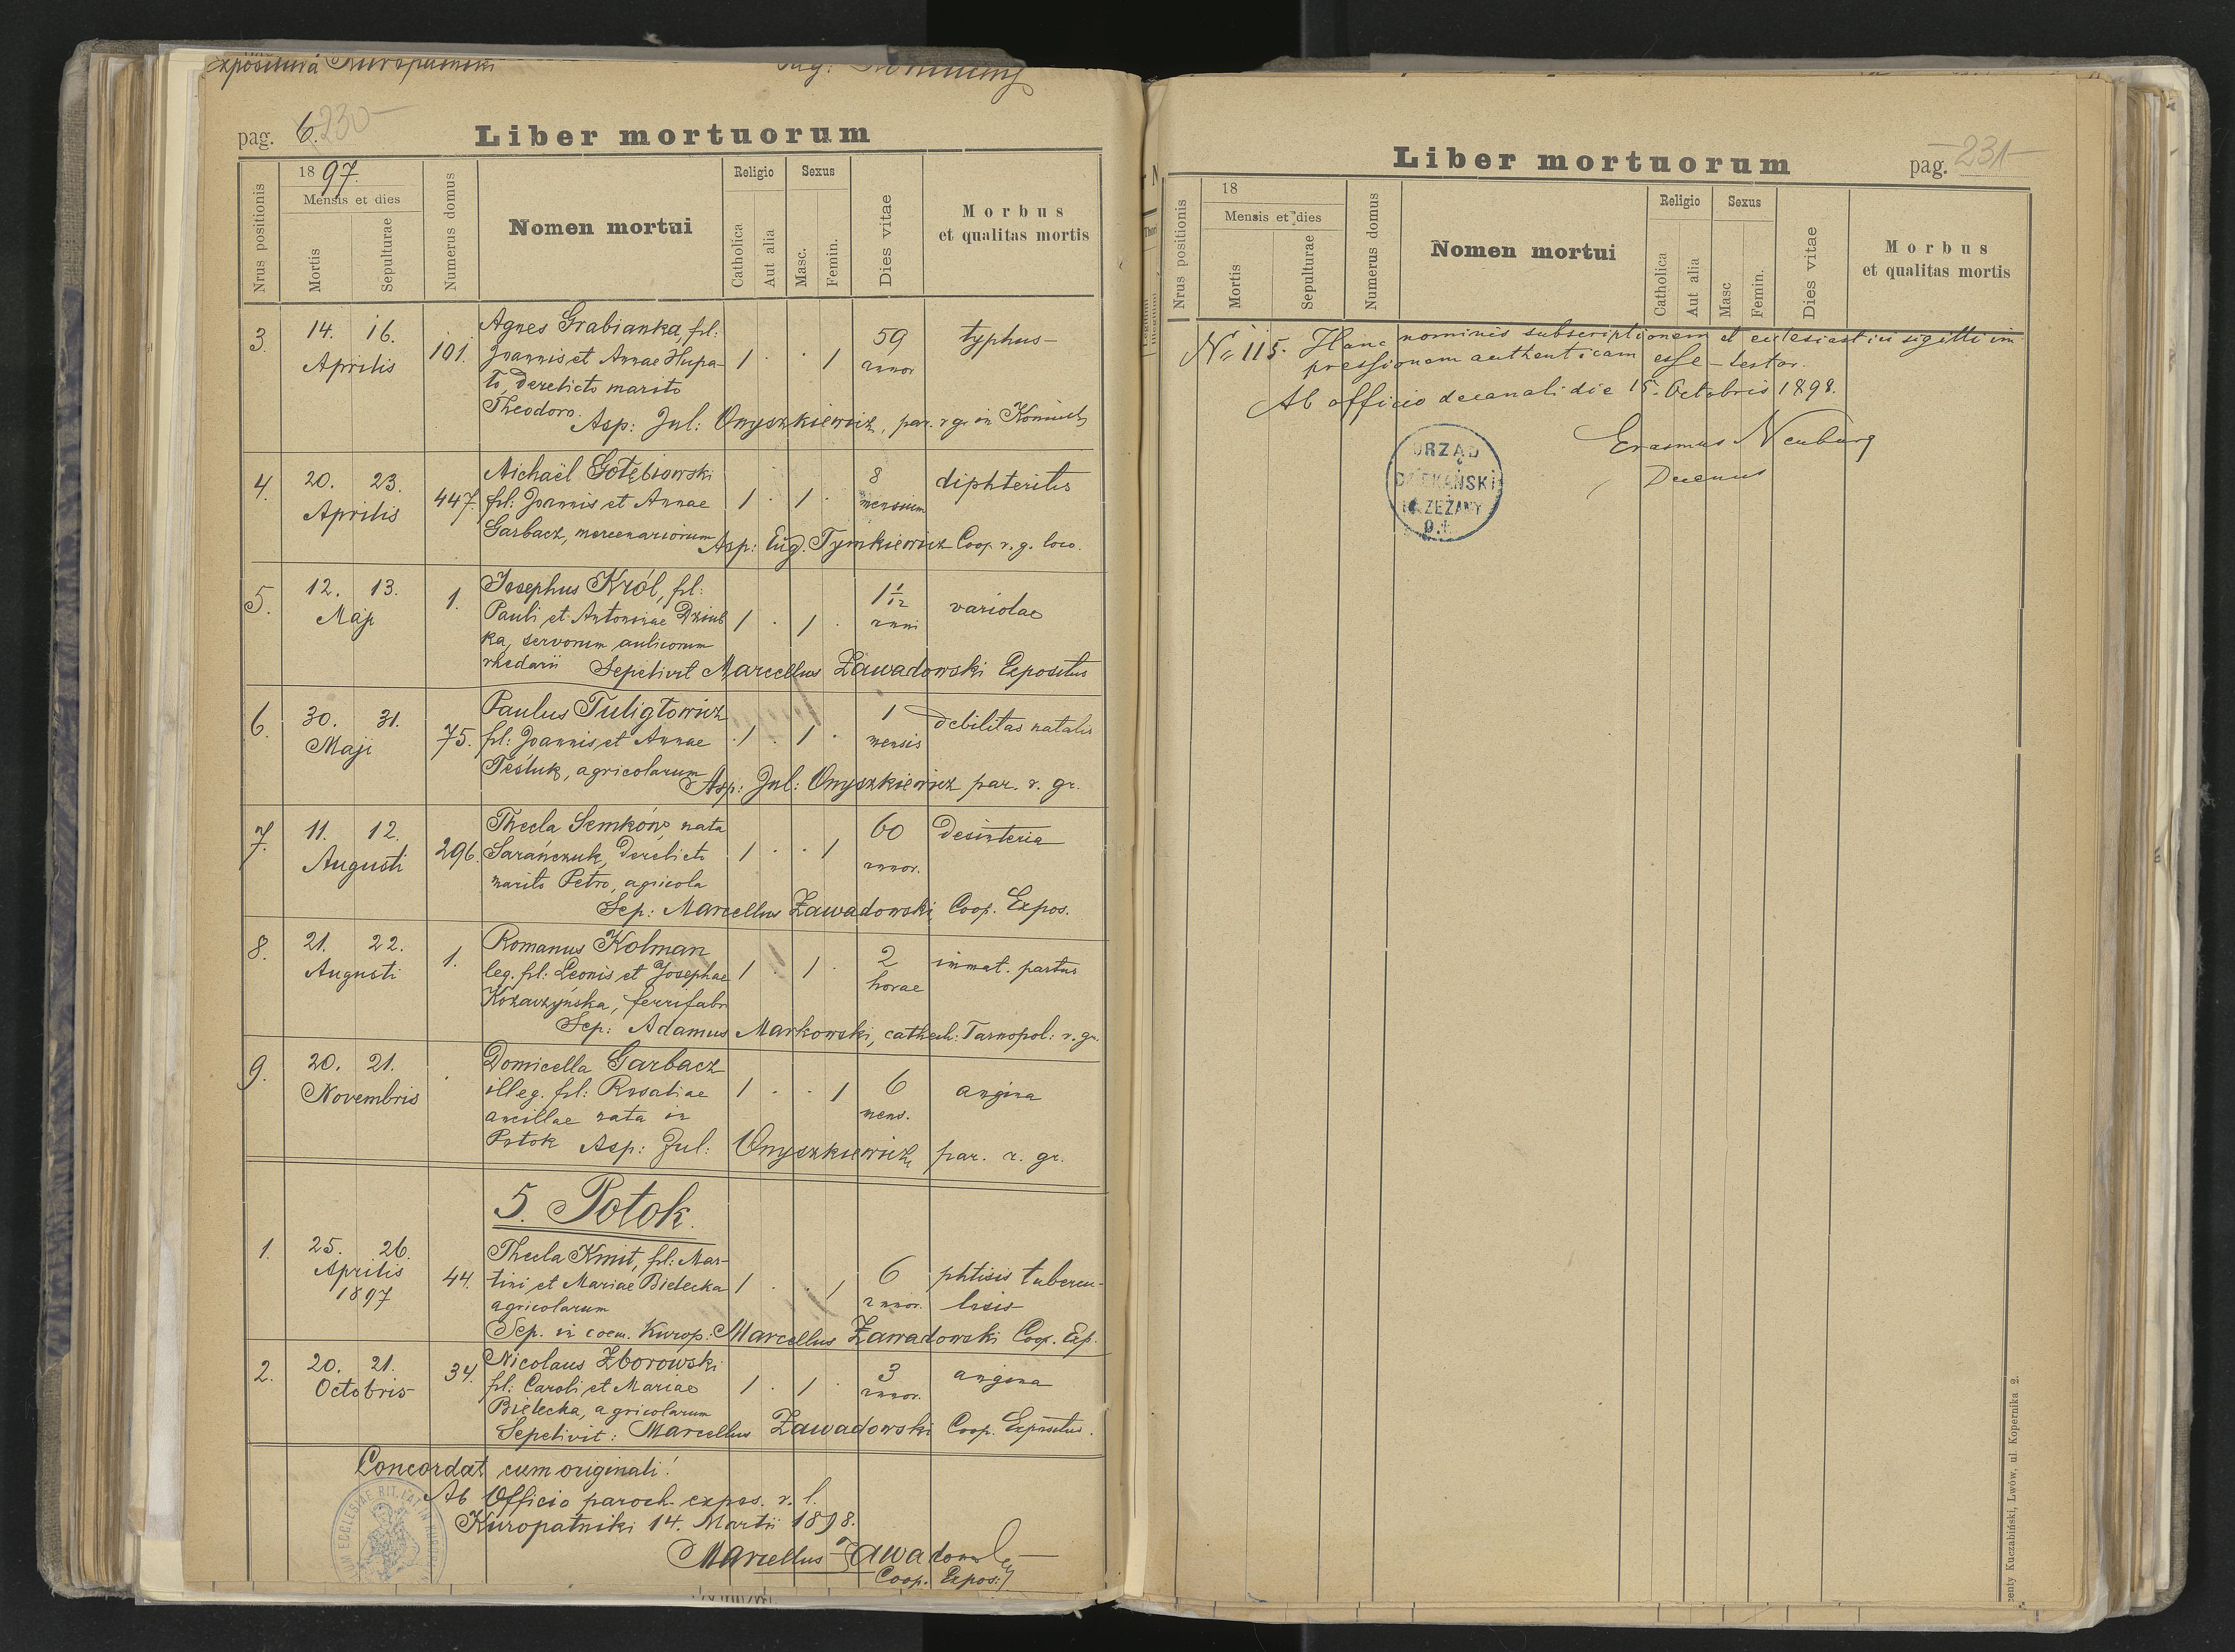 Expositura Kuropatniki pag: Koniuchy
pag. 6. 230
Liber mortuorum
Nrus positionis
1897.
Mensis et dies
Mortis
Sepulturae
Numerus domus
Nomen mortui
Religio
Catholica
Aut alia
Sexus
Masc.
Femin.
Dies vitae
Morbus
et qualitas mortis
3. 14. 16. Aprilis 101. Agnes Grabianka, fil: 1 · · 1 59 annor typhus
Joannis et Annae Hupa-
ło, derelicto marito
Theodoro. Asp: Jul: Onyszkiewicz, par. r. gr. in Koniuch
4. 20. 23. Aprilis 447. Michaël Gołębiowski 1 · 1 · 8 mensium diphteritis
fil: Joannis et Annae
Garbacz, mercenariorum Asp: Eug. Tymkiewicz Coop. r. g. loco.
5. 12. 13. Maji 1. Josephus Król, fil: 1 · 1 · 1 1/12 anni variolae
Pauli et Antoninae Dziub
ka, servorum aulicorum
rhedarii Sepelivit Marcellus Zawadowski Expositus
6. 30. 31. Maji 75. Paulus Tuligłowicz 1 · 1 · 1 mensis debilitas natalis
fil: Joannis et Annae
Teśluk, agricolarum Asp: Jul: Onyszkiewicz par. r. gr.
7. 11. 12. Augusti 296. Thecla Semków, nata 1 · · 1 60 annor. Desinteria
Sarańczuk, derelicto
marito Petro, agricola
Sep: Marcellus Zawadowski, Coop. Expos.
8. 21. 22. Augusti 1. Romanus Kolman 1 · 1 · 2 horae immat. partus
leg. fil: Leonis et Josephae
Kozaczyńska, ferrifabr
Sep: Adamus Markowski, catech: Tarnopol: r. gr.
9. 20. 21. Novembris · Domicella Garbacz 1 · · 1 6 mens. angina
illeg. fil: Rosaliae
ancillae nata in
Potok Asp: Jul: Onyszkiewicz, par. r. gr.
5. Potok.
1. 25. 26. Aprilis 1897 44. Thecla Kmit, fil: Mar- 1 · · 1 6 annor. phtisis tubercu-
tini et Mariae Bielecka losis
agricolarum
Sep. in coem. Kurop: Marcellus Zawadowski Coop. Exp.
2. 20. 21. Octobris 34. Nicolaus Zborowski 1 · 1 · 3 annor. angina
fil: Caroli et Mariae
Bielecka, agricolarum
Sepelivit: Marcellus Zawadowski Coop. Expositus.
Concordat cum originali!
Ab Officio paroch. expos. r. l.
Kuropatniki 14. Martii 1898.
Marcellus Zawadowski
Coop. Expos:
UM ECCLESIAE RIT. LAT. IN KUROPA
Liber mortuorum
pag. 231
Nrus positionis
18
Mensis et dies
Mortis
Sepulturae
Numerus domus
Nomen mortui
Religio
Catholica
Aut alia
Sexus
Masc
Femin.
Dies vitae
Morbus
et qualitas mortis
Nr 115. Hanc nominis subscriptionem et ecclesiastici sigilli im
pressionem authenticam esse testor.
Ab officio decanali die 15. Octobris 1898.
Erasmus Neuburg
Decanus
URZĄD
DZIEKAŃSKI
BRZEŻANY
o. ł.
centy Kuczabiński, Lwów, ul. Kopernika 2.